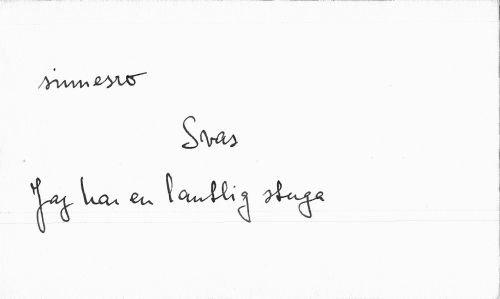 sinnesro
Svas
Jag har en lantlig stuga